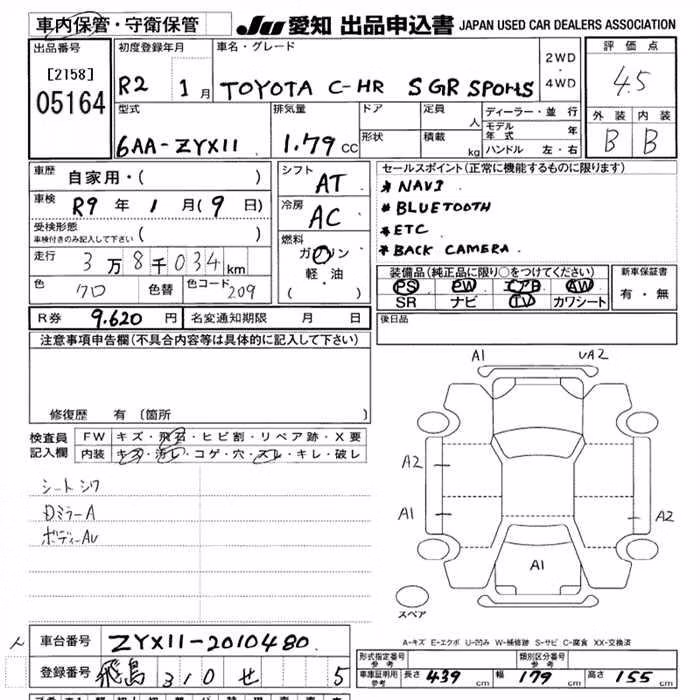 車内保管・守衛保管
JU 愛知 出品申込書 JAPAN USED CAR DEALERS ASSOCIATION
出品番号
[2158]
05164
初度登録年月
R2 1月
車名・グレード
TOYOTA C-HR S GR SPORTS
2WD
・
4WD
評価点
4.5
外装 内装
B B
型式
6AA-ZYX11
排気量
1.79 CC
ドア
形状
定員
人
積載
kg
ディーラー・並行
モデル年式 年
ハンドル 左・右
車歴 自家用・( )
車検 R9 年 1 月(9 日)
受検形態
車検付きのみ記入して下さい ( )
走行 3万8千034km
色 クロ 色替 色コード 209
シフト
AT
冷房
AC
燃料
ガソリン
軽・油
( )
セールスポイント(正常に機能するものに限ります)
* NAVI
* BLUETOOTH
* ETC
* BACK CAMERA
装備品(純正品に限り○をつけてください)
PS PW エアB AW
SR ナビ TV カワシート
新車保証書
有・無
後日品
R券 9.620 円 名変通知期限 月 日
注意事項申告欄(不具合内容等は具体的に記入して下さい)
修復歴 有(箇所 )
検査員
記入欄
FW キズ・飛石・ヒビ割・リペア跡・X要
内装 キズ・汚レ・コゲ・穴・スレ・キレ・破レ
シートシワ
Dミラー A
ボディー AU
A1 UA2
A2
A1
A2
A1
スペア
A-キズ E-エクボ U-凹み W-補修跡 S-サビ C-腐食 XX-交換済
車台番号 ZYX11-2010480
登録番号 飛鳥 310 せ 5
形式指定番号
参考
類別区分番号
参考
車庫証明用
参考
長さ 439 cm 幅 179 cm 高さ 155 cm